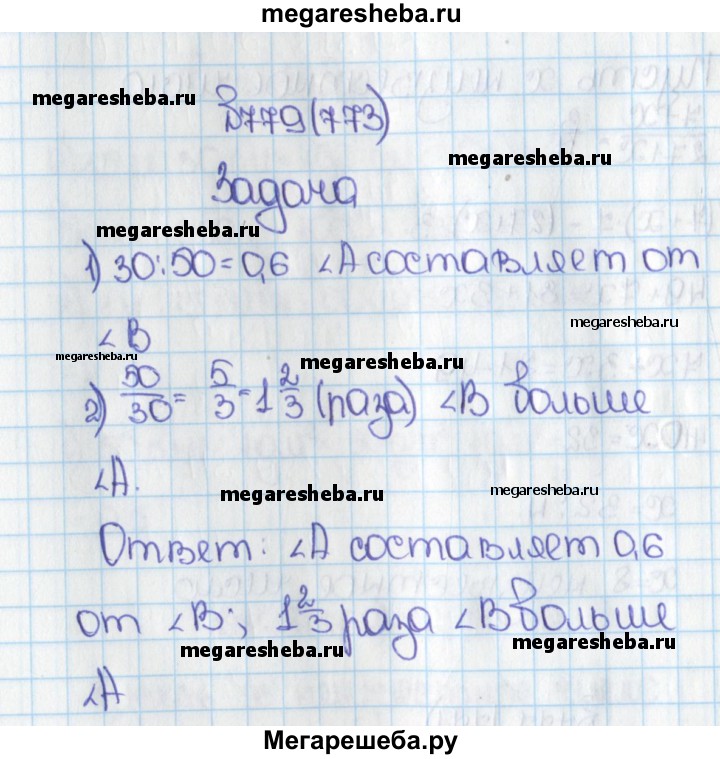 megaresheba.ru
megaresheba.ru
№779(773)
megaresheba.ru
Задача
megaresheba.ru
1) 30:50=0,6 ∠А составляет от
megaresheba.ru
∠В
megaresheba.ru
megaresheba.ru
2) 50/30 = 5/3 = 1 2/3 (раза) ∠В больше
∠А.
megaresheba.ru
megaresheba.ru
Ответ: ∠А составляет 0,6
от ∠В; 1 2/3 раза ∠В больше
megaresheba.ru
megaresheba.ru
∠А
Мегарешеба.ру